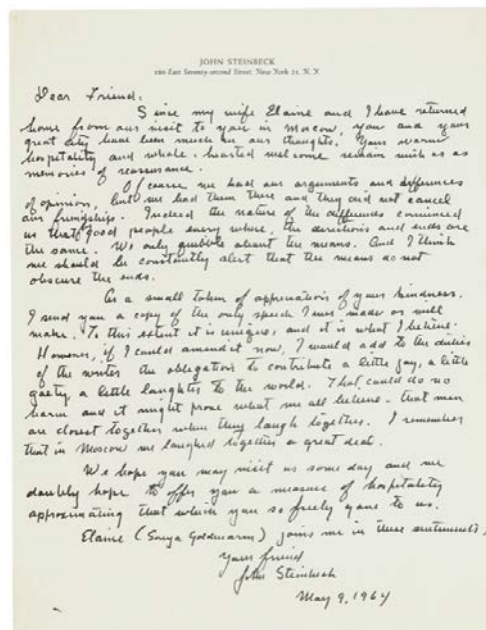 JOHN STEINBECK
190 East Seventy-second Street, New York 21, N. Y.
Dear Friend:
Since my wife Elaine and I have returned
home from our visit to you in Moscow, you and your
great city have been much in our thoughts. Your warm
hospitality and whole-hearted welcome remain with us as
memories of reassurance.
Of course we had our arguments and differences
of opinion, but we had them there and they did not cancel
our friendships. Indeed the nature of the differences convinced
us that good people every where, the directions and ends are
the same. We only quibble about the means. And I think
we should be constantly alert that the means do not
obscure the ends.
As a small token of appreciation of your kindness,
I send you a copy of the only speech I ever made or will
make. To this extent it is unique, and it is what I believe.
However, if I could amend it now, I would add to the duties
of the writer the obligation to contribute a little joy, a little
gaety, a little laughter to the world. That could do no
harm and it might prove what we all believe - that men
are closest together when they laugh together. I remember
that in Moscow we laughed together a great deal.
We hope you may visit us some day and we
doubly hope to offer you a measure of hospitality
approximating that which you so freely gave to us.
Elaine (Sonya Goldmarm) joins me in these sentiments,
Your friend
John Steinbeck
May 9, 1964